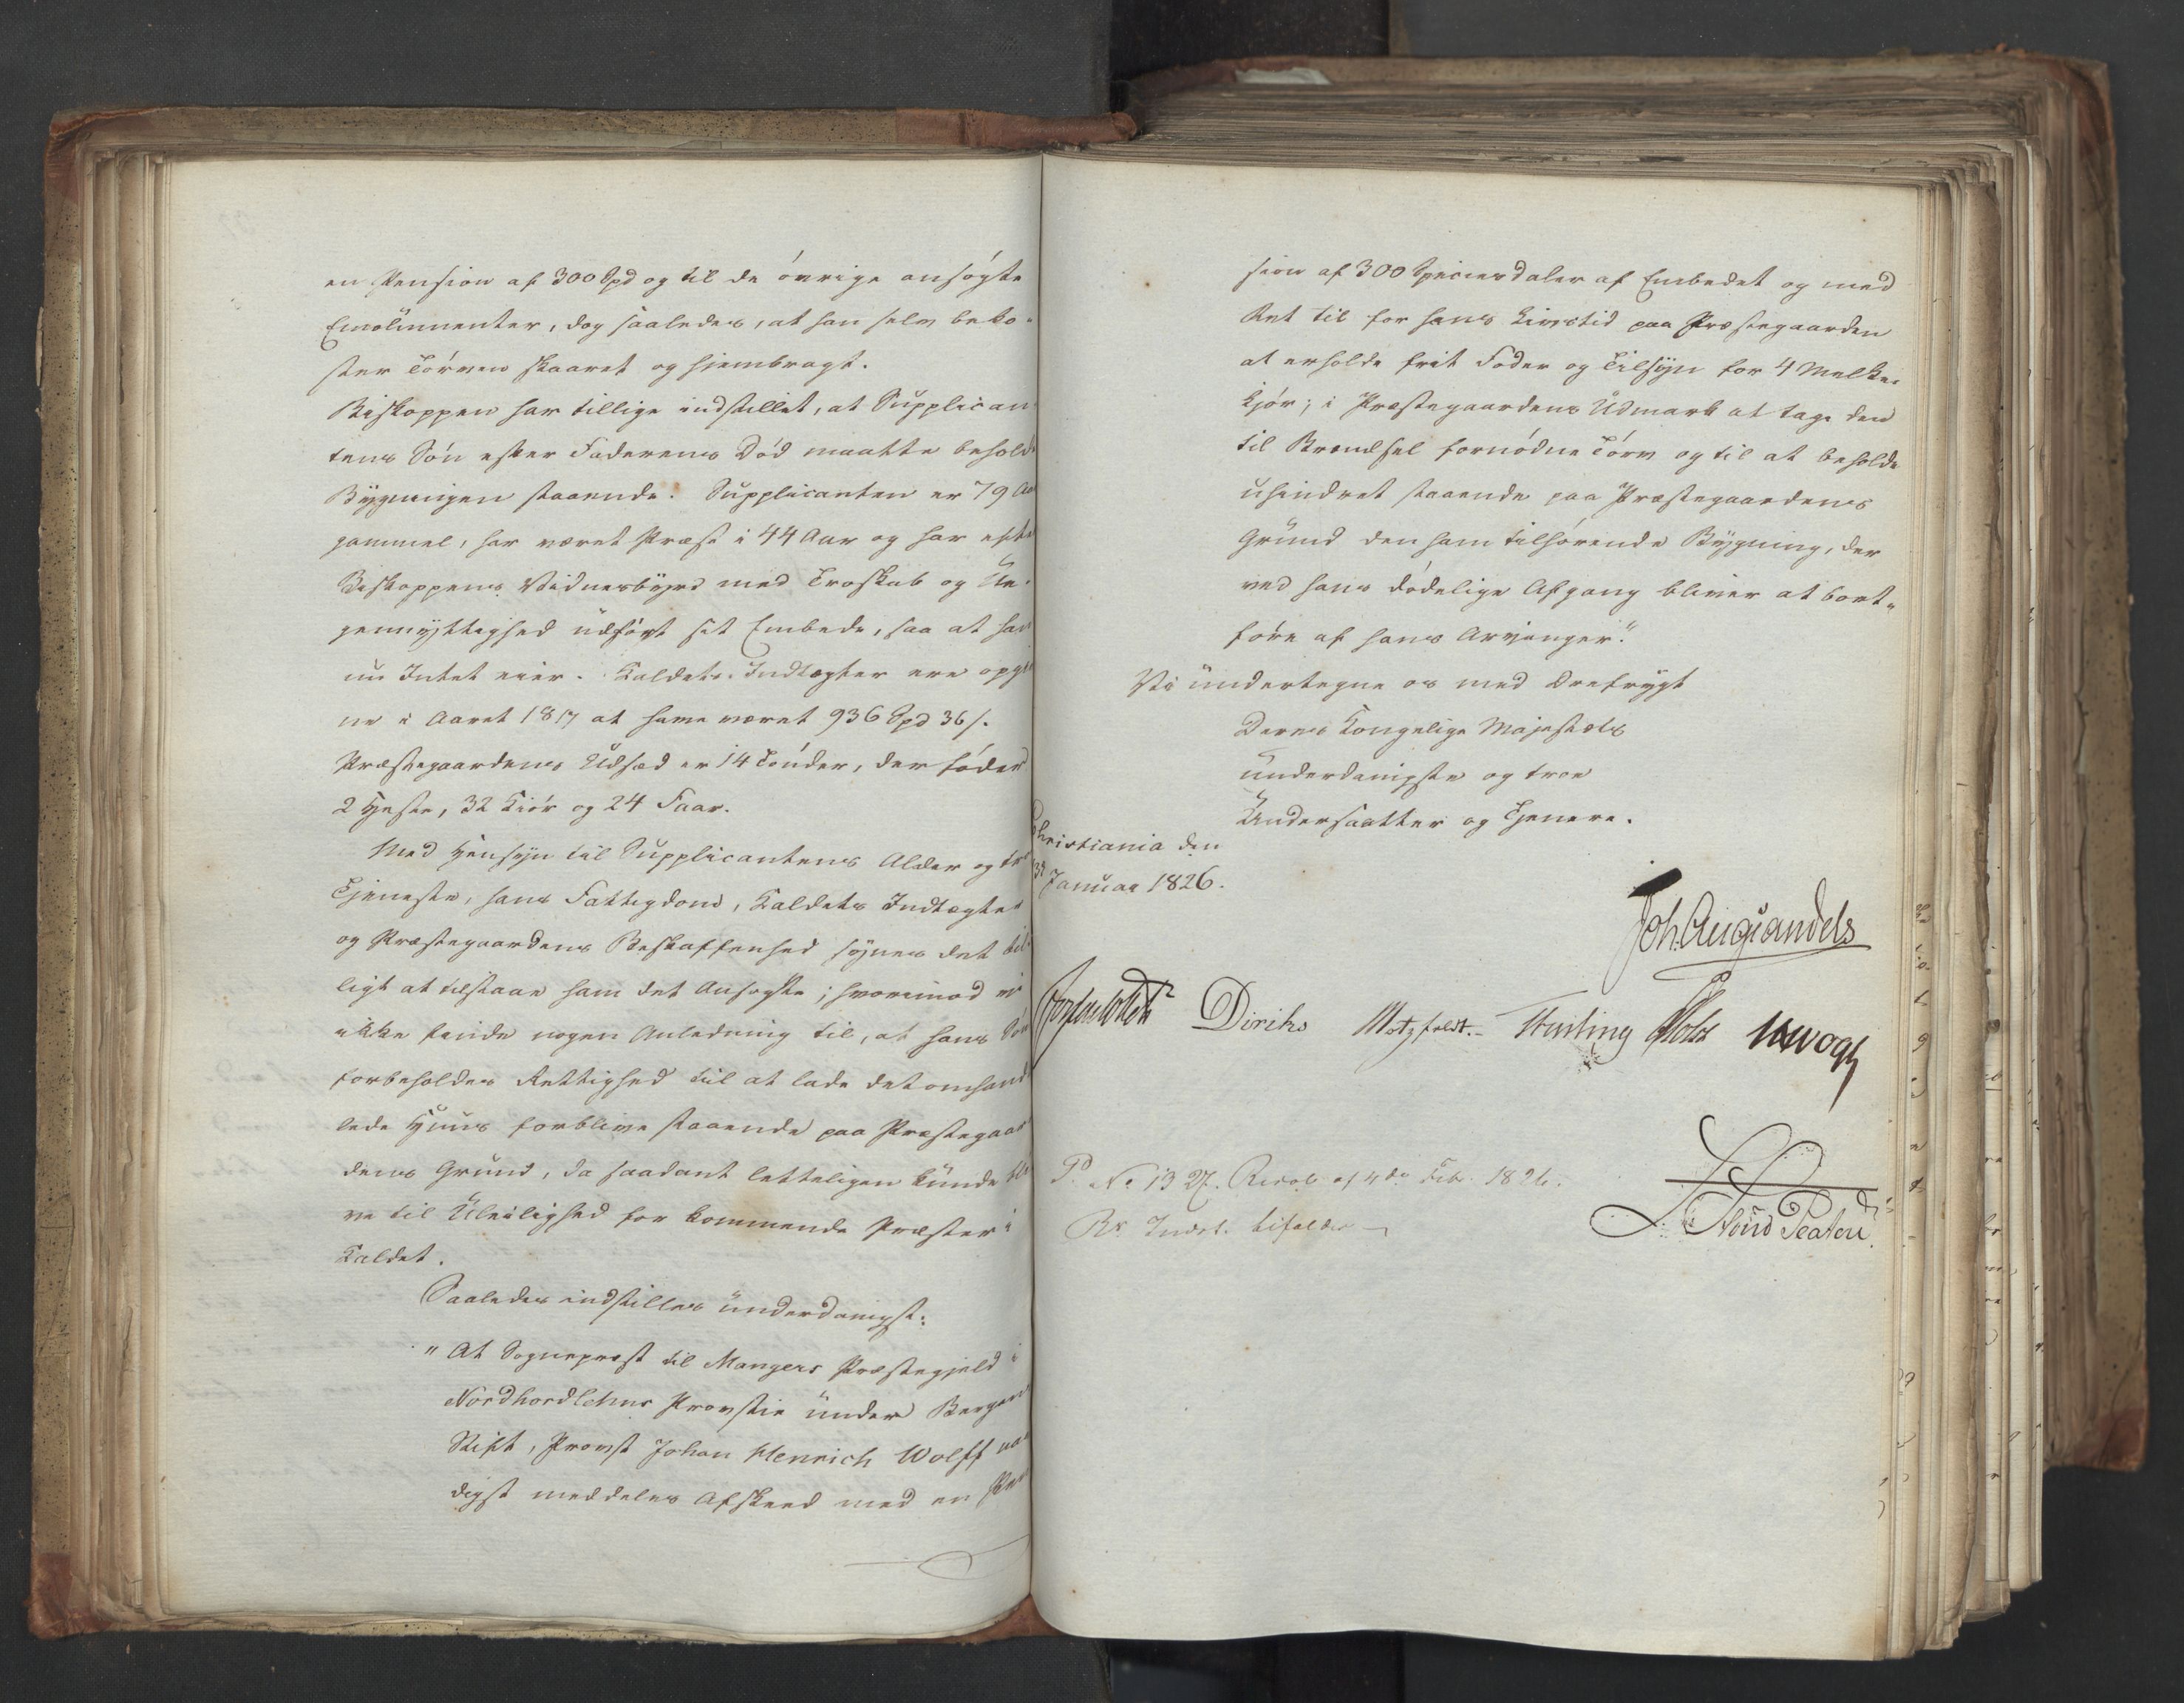 en Pension af 300 Spd og til de övrige ansögte
Emolumenter, dog saaledes, at han selv beko-
ster Törven skaaret og hjembragt.
Biskoppen har tillige indstillet, at Supplican-
tens Sön efter Faderens Död maatte beholde
Bygningen staaende. Supplicanten er 79 Aar
gammel, har været Præst i 44 Aar og har efter
Biskoppens Vidnesbyrd med Troskab og Ue-
gennyttighed udført sit Embede, saa at han
nu Intet eier. Kaldets Indtægter ere opgiv-
ne i Aaret 1817 at have været 936 Spd 36 s.
Præstegaardens Udsæd er 14 Tönder, der föder
2 Heste, 32 Kiör og 24 Faar.
Med Hensyn til Supplicantens Alder og tro
Tjeneste, hans Fattigdom, Kaldets Indtægter
og Præstegaardens Beskaffenhed synes det bil-
ligt at tilstaae ham det Ansøgte; hvorimod vi
ikke finde nogen Anledning til, at hans Sön
forbeholdes Rettighed til at lade det omhand-
lede Huus forblive staaende paa Præstegaar-
dens Grund, da saadant letteligen kunde bli-
ve til Uleilighed for kommende Præster i
Kaldet.
Saaledes indstilles underdanigst:
"At Sognepræst til Mangers Præstegjeld i
Nordhordlehns Provstie under Bergens
Stift, Provst Johan Henrich Wolff naa-
digst meddeles Afskeed med en Pen-
sion af 300 Speciesdaler af Embedet og med
Ret til for hans Livstid paa Præstegaarden
at erholde frit Foder og Tilsyn for 4 Melke-
kjör; i Præstegaardens Udmark at tage den
til Brændsel fornödne Törv og til at beholde
uhindret staaende paa Præstegaardens
Grund den ham tilhörende Bygning, der
ved hans dödelige Afgang bliver at bort-
före af hans Arvinger."
Vi undertegne os med Ærefrygt
Deres Kongelige Majestæts
underdanigste og troe
Undersaatter og Tjenere.
Christiania den
Januar 1826.
Joh. Aug. Sandels
Diriks Motzfeldt. Treschow Holst
P. No 13 27. Resol. af 4de Febr. 1826.
Rs. Indst. bifaldes